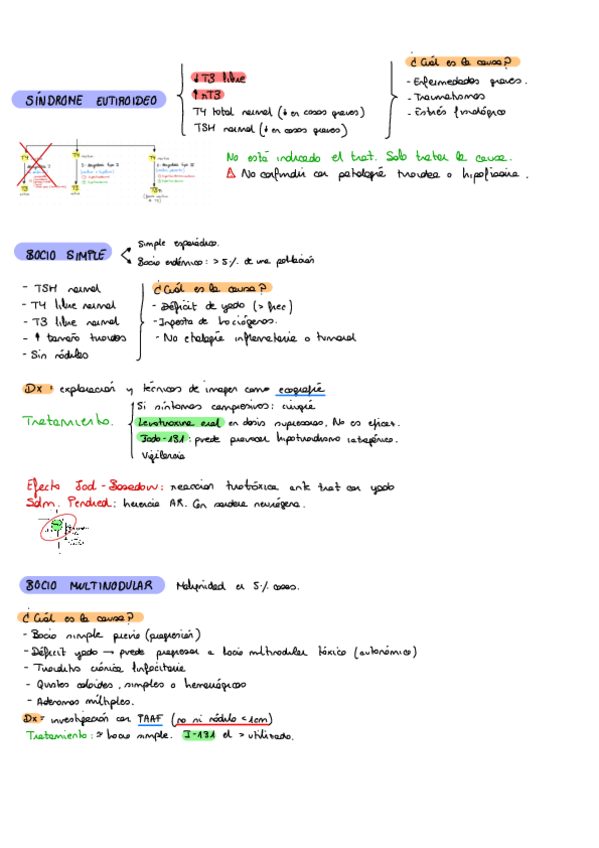 SÍNDROME EUTIROIDEO
↓T3 libre
↑rT3
T4 total normal (↓ en casos graves)
TSH normal (↓ en casos graves)
¿Cuál es la causa?
- Enfermedades graves.
- Traumatismos
- Estrés fisiológico
T4
T4
T4
T3
T3
No está indicado el trat. Solo tratar la causa.
⚠ No confundir con patología tiroidea o hipofisaria.
BOCIO SIMPLE
Simple esporádico.
Bocio endémico: > 5% de una población
- TSH normal
- T4 libre normal
- T3 libre normal
- ↑ tamaño tiroides
- Sin nódulos
¿Cuál es la causa?
- Déficit de yodo (> frec)
- Ingesta de bociógenos.
- No etiología inflamatoria o tumoral
Dx: exploración y técnicas de imagen como ecografía
Tratamiento.
Si síntomas compresivos: cirugía
Levotiroxina oral en dosis supresoras. No es eficaz.
Iodo-131: puede provocar hipotiroidismo iatogénico.
Vigilancia
Efecto Jod-Basedow: reacción tirotóxica ante trat con yodo
Sdm. Pendred: herencia AR. Con sordera neurógena.
BOCIO MULTINODULAR
Malignidad en 5% casos.
¿Cuál es la causa?
- Bocio simple previo (progresión)
- Déficit yodo → puede progresar a bocio multinodular tóxico (autonómico)
- Tiroiditis crónica linfocitaria
- Quistes coloides, simples o hemorrágicos
- Adenomas múltiples.
Dx= investigación con PAAF (no si nódulo <1cm)
Tratamiento: ≈ bocio simple. I-131 el > utilizado.